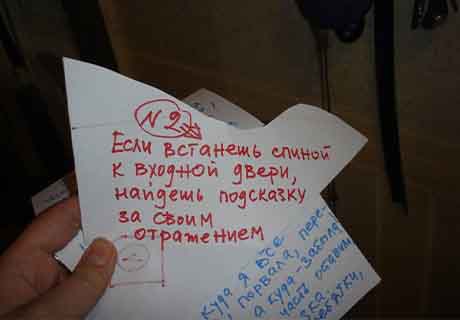 N2
Если встанешь спиной
к входной двери,
найдешь подсказку
за своим
отражением
куда я все пере-
порвала,
а куда - забыла
часть